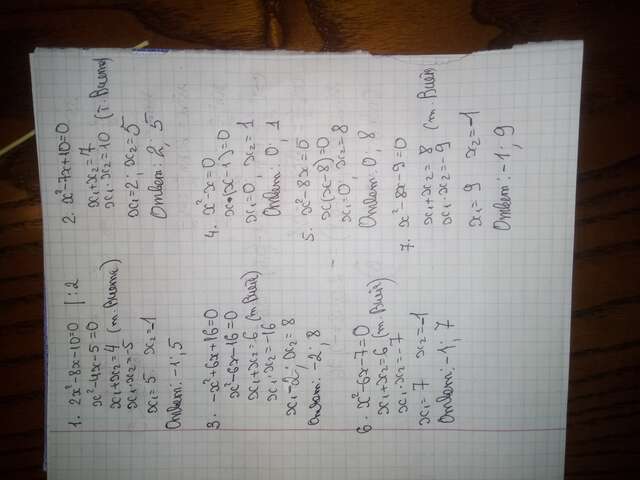 1. 2x²-8x-10=0 |:2
x²-4x-5=0
x₁+x₂=4 (т. Виета)
x₁·x₂=-5
x₁=5 x₂=-1
Ответ: -1; 5
2. x²-7x+10=0
x₁+x₂=7
x₁·x₂=10 (т. Виета)
x₁=2; x₂=5
Ответ: 2; 5
3. -x²+6x+16=0
x²-6x-16=0
x₁+x₂=6 (т. Виет)
x₁·x₂=-16
x₁=-2; x₂=8
Ответ: -2; 8
4. x²-x=0
x·(x-1)=0
x₁=0; x₂=1
Ответ: 0; 1
5. x²-8x=0
x(x-8)=0
x₁=0; x₂=8
Ответ: 0; 8
6. x²-6x-7=0
x₁+x₂=6 (т. Виет)
x₁·x₂=-7
x₁=7 x₂=-1
Ответ: -1; 7
7. x²-8x-9=0
x₁+x₂=8 (т. Виет)
x₁·x₂=-9
x₁=9 x₂=-1
Ответ: -1; 9